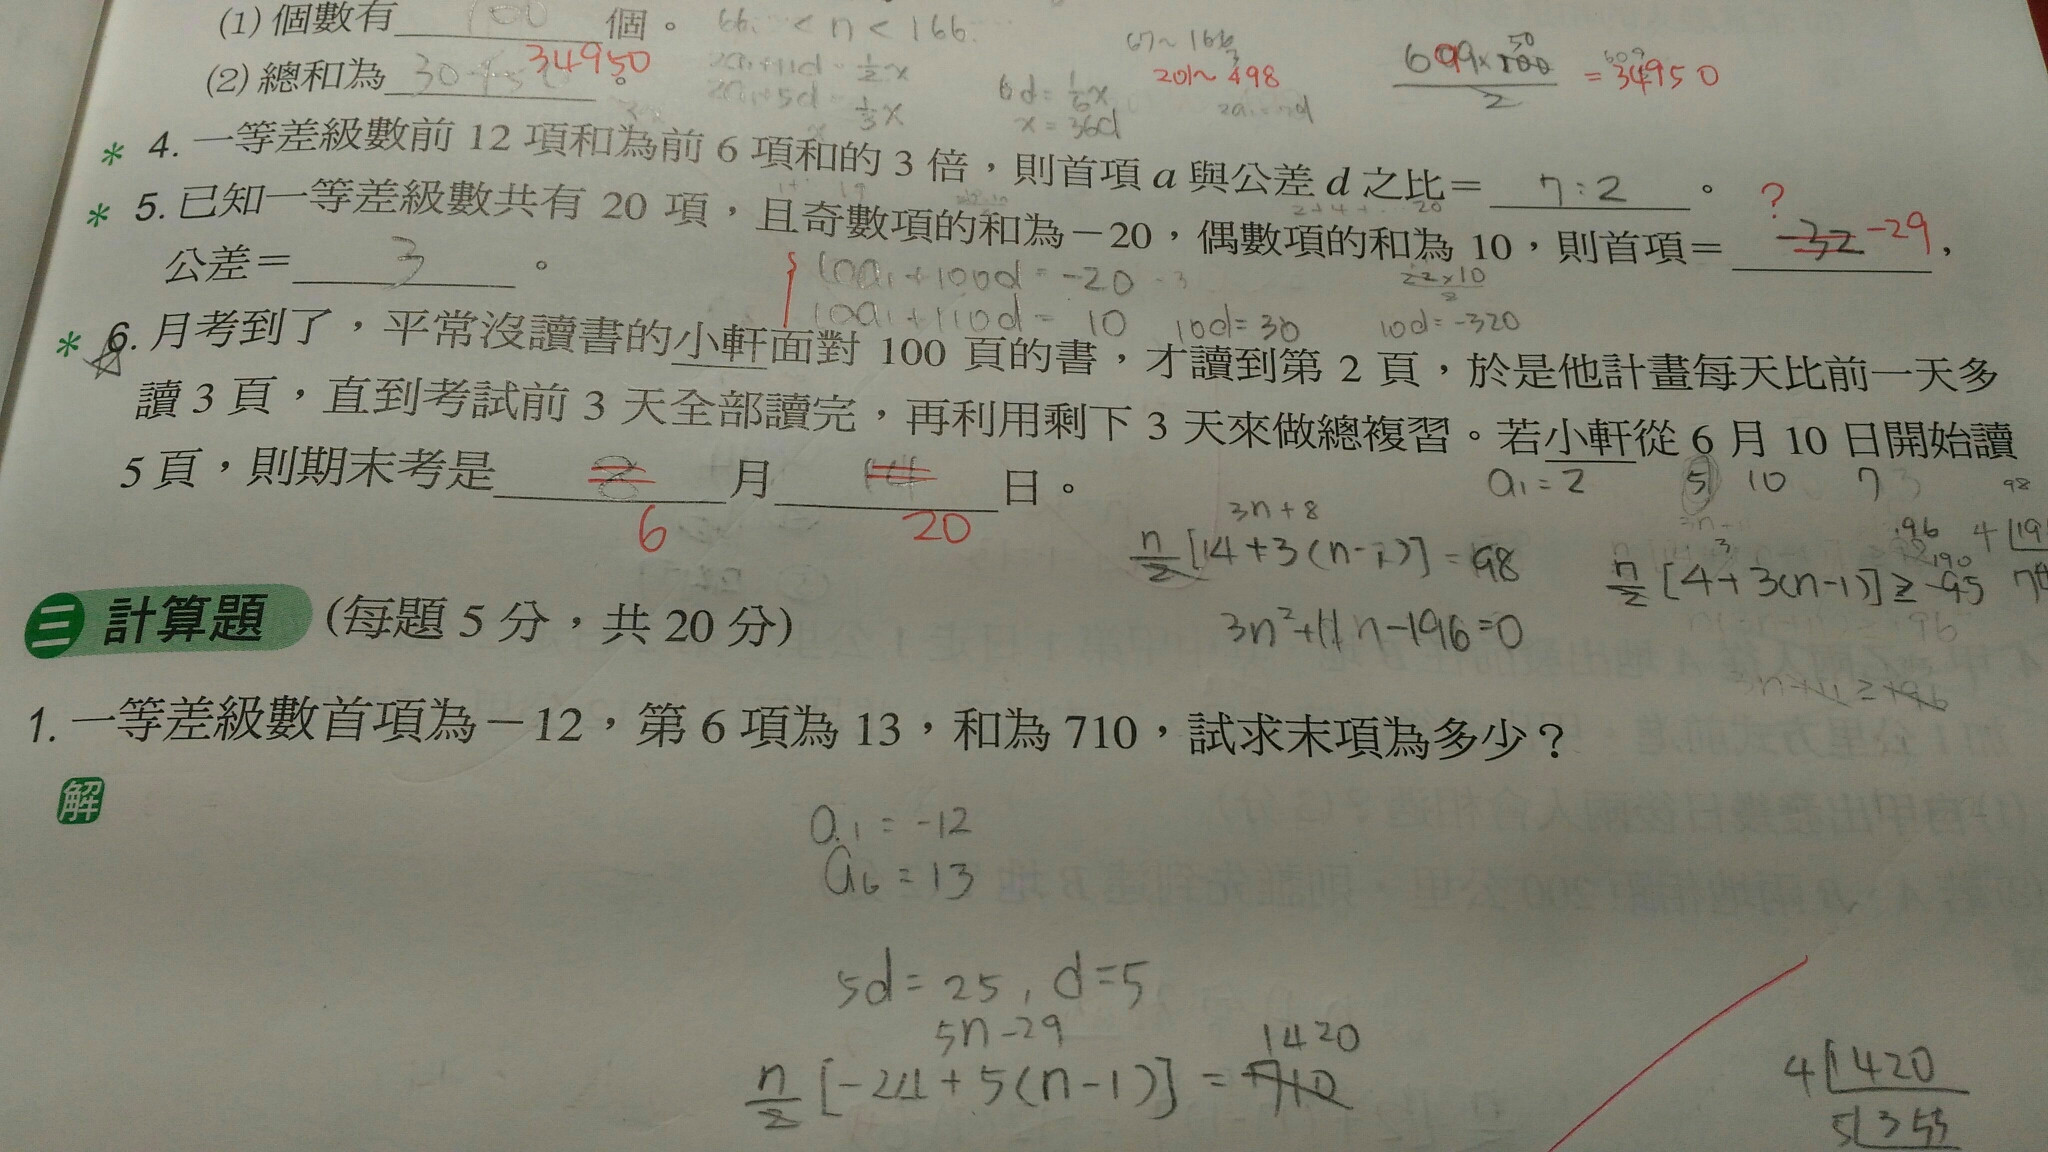 (1) 個數有 100 個。 66. < n < 166
67~166
201~498
699×100 50
2
= 34950
(2) 總和為 34950 。
2a₁+11d = 1/2 x
2a₁+5d = 1/3 x
6d = 1/6 x
x = 36d
* 4. 一等差級數前 12 項和為前 6 項和的 3 倍,則首項 a 與公差 d 之比= 7:2 。
* 5. 已知一等差級數共有 20 項,且奇數項的和為-20,偶數項的和為 10,則首項= -32 -29 ,
?
公差= 3 。
10a₁+100d = -20
10a₁+110d = 10
10d=30
10d=-320
22×10
2
* 6. 月考到了,平常沒讀書的小軒面對 100 頁的書,才讀到第 2 頁,於是他計畫每天比前一天多
讀 3 頁,直到考試前 3 天全部讀完,再利用剩下 3 天來做總複習。若小軒從 6 月 10 日開始讀
5 頁,則期末考是 月 14 日。
6 20
a₁=2 5 10 7 98
3n+8
n/2 [14+3(n-1)] = 98
3n²+11n-196=0
n/2 [4+3(n-1)] ≥ 95
196
190
三 計算題 (每題 5 分,共 20 分)
1. 一等差級數首項為-12,第 6 項為 13,和為 710,試求末項為多少?
解
a₁ = -12
a₆ = 13
5d = 25, d=5
5n-29
1420
n/2 [-24+5(n-1)] = 710
4 1420
5 355